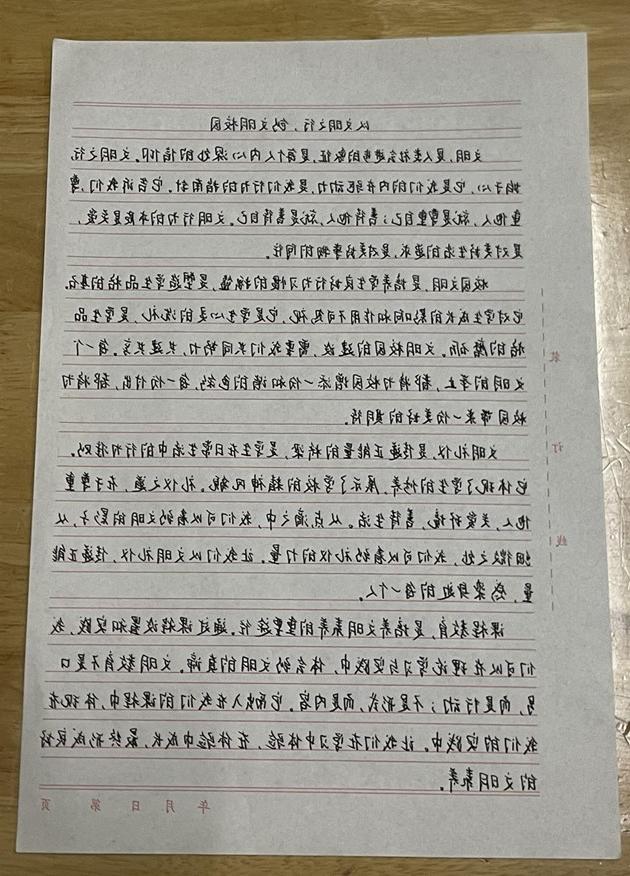 以文明之行，创文明校园
文明，是人类社会进步的象征，是每个人内心深处的信仰。文明之行，
始于心，它是我们的内在驱动力，是我们行为的指南针。它告诉我们，尊
重他人，就是尊重自己；善待他人，就是善待自己。文明行为的本质是关爱，
是对美好生活的追求，是对美好事物的向往。
校园文明，是培养学生良好行为习惯的摇篮，是塑造学生品格的基石
它对学生成长的影响和作用不可忽视，它是学生心灵的洗礼，是学生品
格的磨砺。文明校园的建设，需要我们共同努力，共建共享，每一个
文明的举止，都将为校园增添一份和谐的色彩，每一份付出，都将为
校园带来一份美好的期待。
文明礼仪，是传递正能量的桥梁，是学生在日常生活中的行为准则。
它体现了学生的修养，展示了学校的精神风貌。礼仪之道，在于尊重
他人，关爱环境，善待生活。从点滴之中，我们可以看到文明的影子，从
细微之处，我们可以看到礼仪的力量。让我们以文明礼仪，传递正能
量，感染身边的每一个人。
课程教育，是培养文明素养的重要途径。通过课程设置和实践，我
们可以在理论学习与实践中，体会到文明的真谛。文明教育不是口
号，而是行动；不是形式，而是内容。它应融入在我们的课程中，体现在
我们的实践中。让我们在学习中体验，在体验中成长，最终形成良好
的文明素养。
装
订
线
年 月 日 第 页